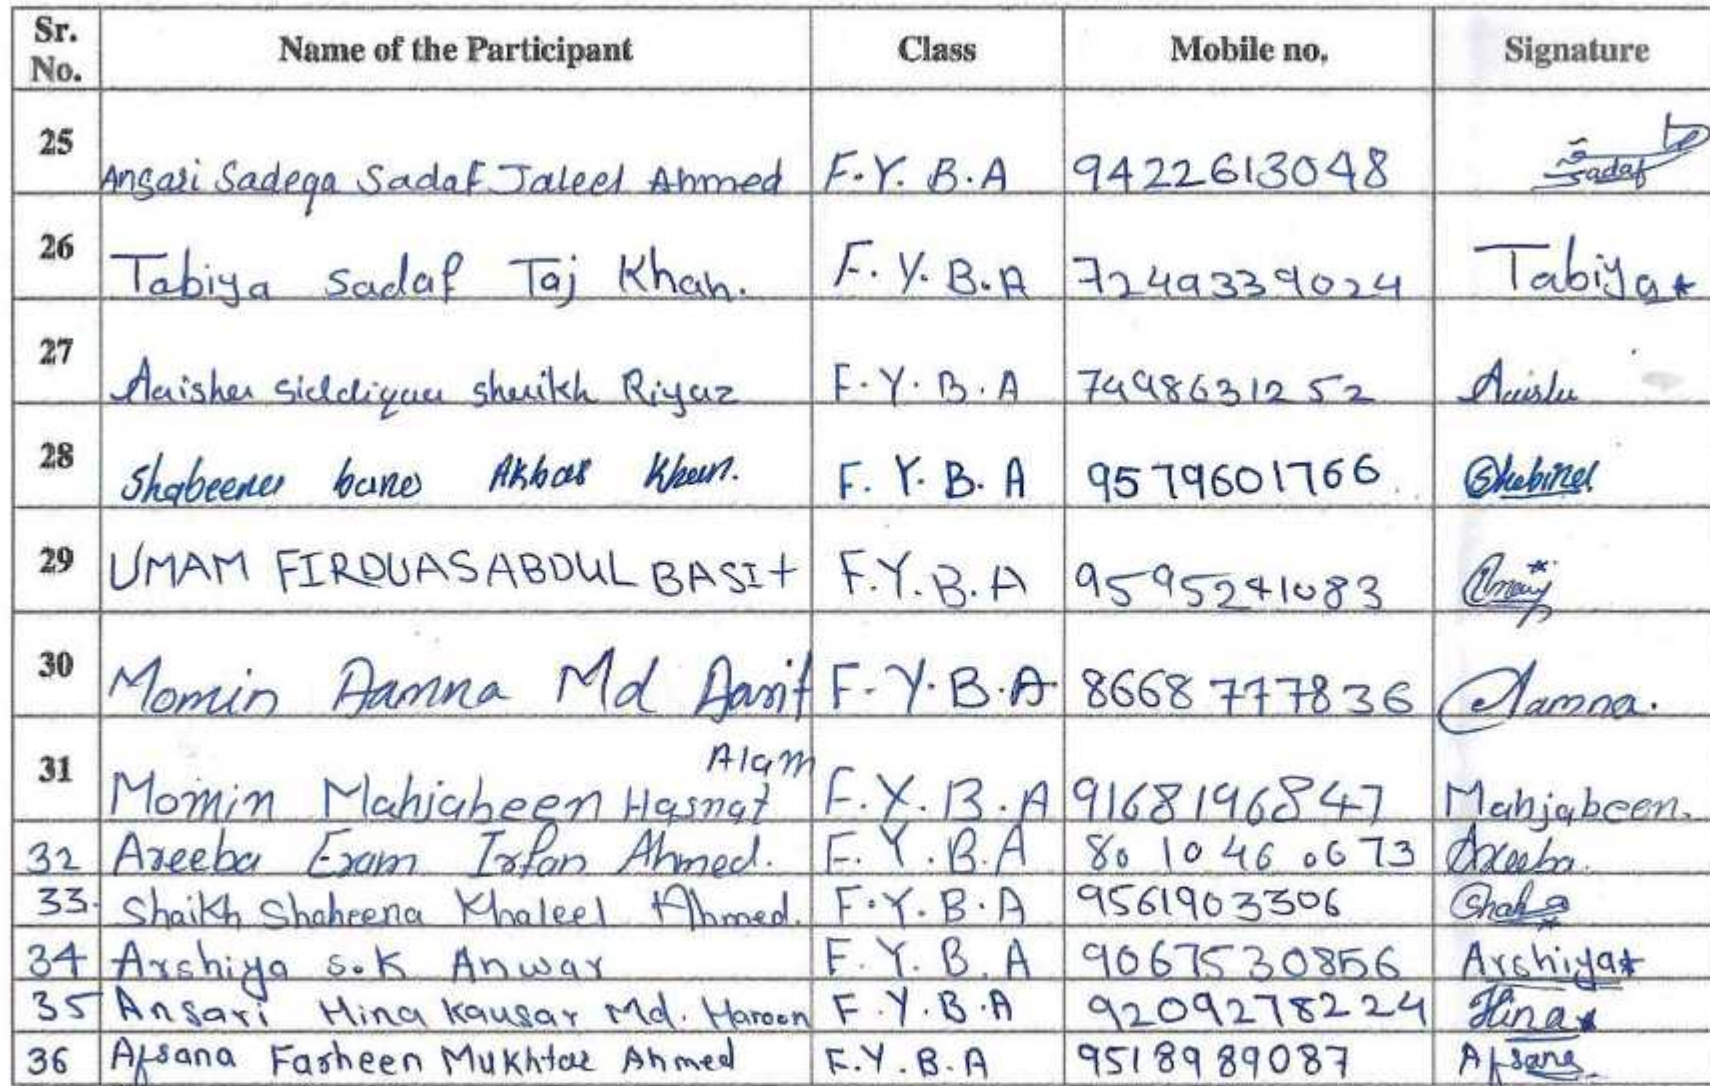 Sr. No. Name of the Participant Class Mobile no. Signature
25 Ansari Sadeqa Sadaf Jaleel Ahmed F.Y.B.A 9422613048 Sadaf
26 Tabiya Sadaf Taj Khan. F.Y.B.A 7249339024 Tabiya
27 Aaisha Siddiqua Shaikh Riyaz F.Y.B.A 7498631252 Aaisha
28 Shabeena bano Akbar Khan. F.Y.B.A 9579601766 Shabina
29 UMAM FIRDUAS ABDUL BASIt F.Y.B.A 9595241083
30 Momin Aamna Md Aasif F.Y.B.A 8668777836 Aamna.
31 Momin Mahjabeen Hasnat Alam F.Y.B.A 9168196847 Mahjabeen.
32 Areeba Eram Irfan Ahmed. F.Y.B.A 8010460673 Areeba.
33. Shaikh Shaheena Khaleel Ahmed. F.Y.B.A 9561903306
34 Arshiya S.K Anwar F.Y.B.A 9067530856 Arshiya
35 Ansari Hina Kausar Md. Haroon F.Y.B.A 9209278224 Hina
36 Afsana Farheen Mukhtar Ahmed F.Y.B.A 9518989087 Afsana